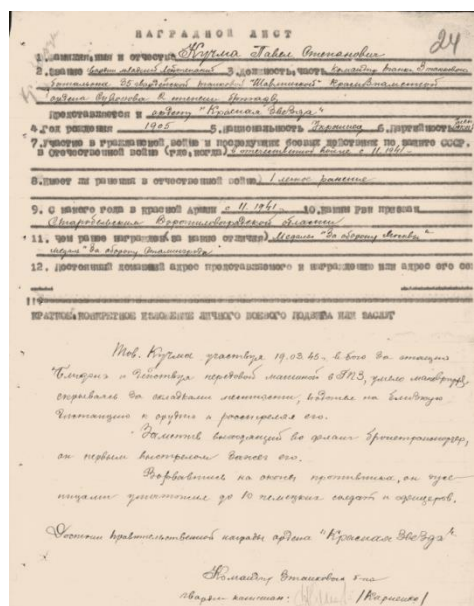 24
НАГРАДНОЙ ЛИСТ
1. Фамилия, имя и отчество Кучма Павел Степанович
2. Звание гвардии младший лейтенант 3. Должность, часть Командир танка 3 танкового
батальона 25 Гвардейской танковой Краснознаменной
ордена Суворова II степени бригады
Представляется к ордену "Красная Звезда"
4. Год рождения 1905 5. Национальность Украинец 6. Партийность
7. Участие в гражданской войне и последующих боевых действиях по защите СССР.
в Отечественной войне (где, когда) в отечественной войне с 11.1941-
8. Имеет ли ранения в отечественной войне) 1 легкое ранение
9. С какого года в Красной Армии с 11.1941- 10. Каким РВК призван
Старобельским Ворошиловградской области
11. Чем ранее награжден (за какие отличия) Медаль "За оборону Москвы"
медаль "За оборону Сталинграда"
12. Постоянный домашний адрес представляемого к награждению или адрес его се
КРАТКОЕ, КОНКРЕТНОЕ ИЗЛОЖЕНИЕ ЛИЧНОГО БОЕВОГО ПОДВИГА ИЛИ ЗАСЛУГ
Тов. Кучма участвуя 19.03.45- в бою за станцию
и действуя передовой машиной в ГПЗ, умело маневрируя,
скрываясь за складками местности, подошел на близкую
дистанцию к орудию и расстрелял его.
Заметив выходящий во фланг бронетранспортер,
он первым выстрелом сжег его.
Ворвавшись на окопы противника, он гусе-
ницами уничтожил до 10 немецких солдат и офицеров.
Достоин правительственной награды ордена "Красная Звезда".
Командир 3 танкового б-на
гвардии капитан: /Карпенко/